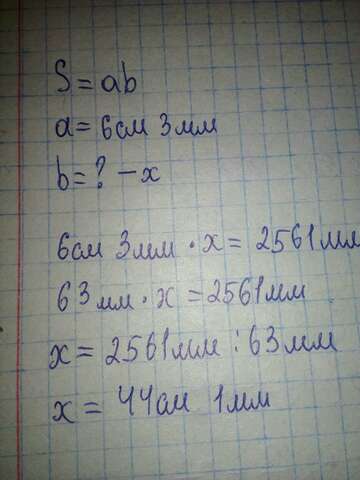 S = ab
a = 6см 3мм
b = ? – x
6см 3мм · x = 2561мм
63мм · x = 2561мм
x = 2561мм : 63мм
x = 44см 1мм